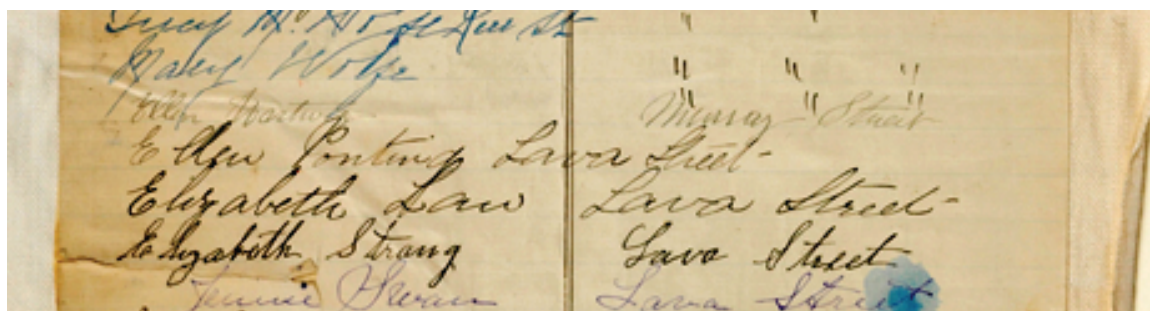 Mary Wolfe " " "
Ellen Murray Street
Ellen Ponting Lava Street
Elizabeth Law Lava Street
Elizabeth Strong Lava Street
Jennie Swan Lava Street